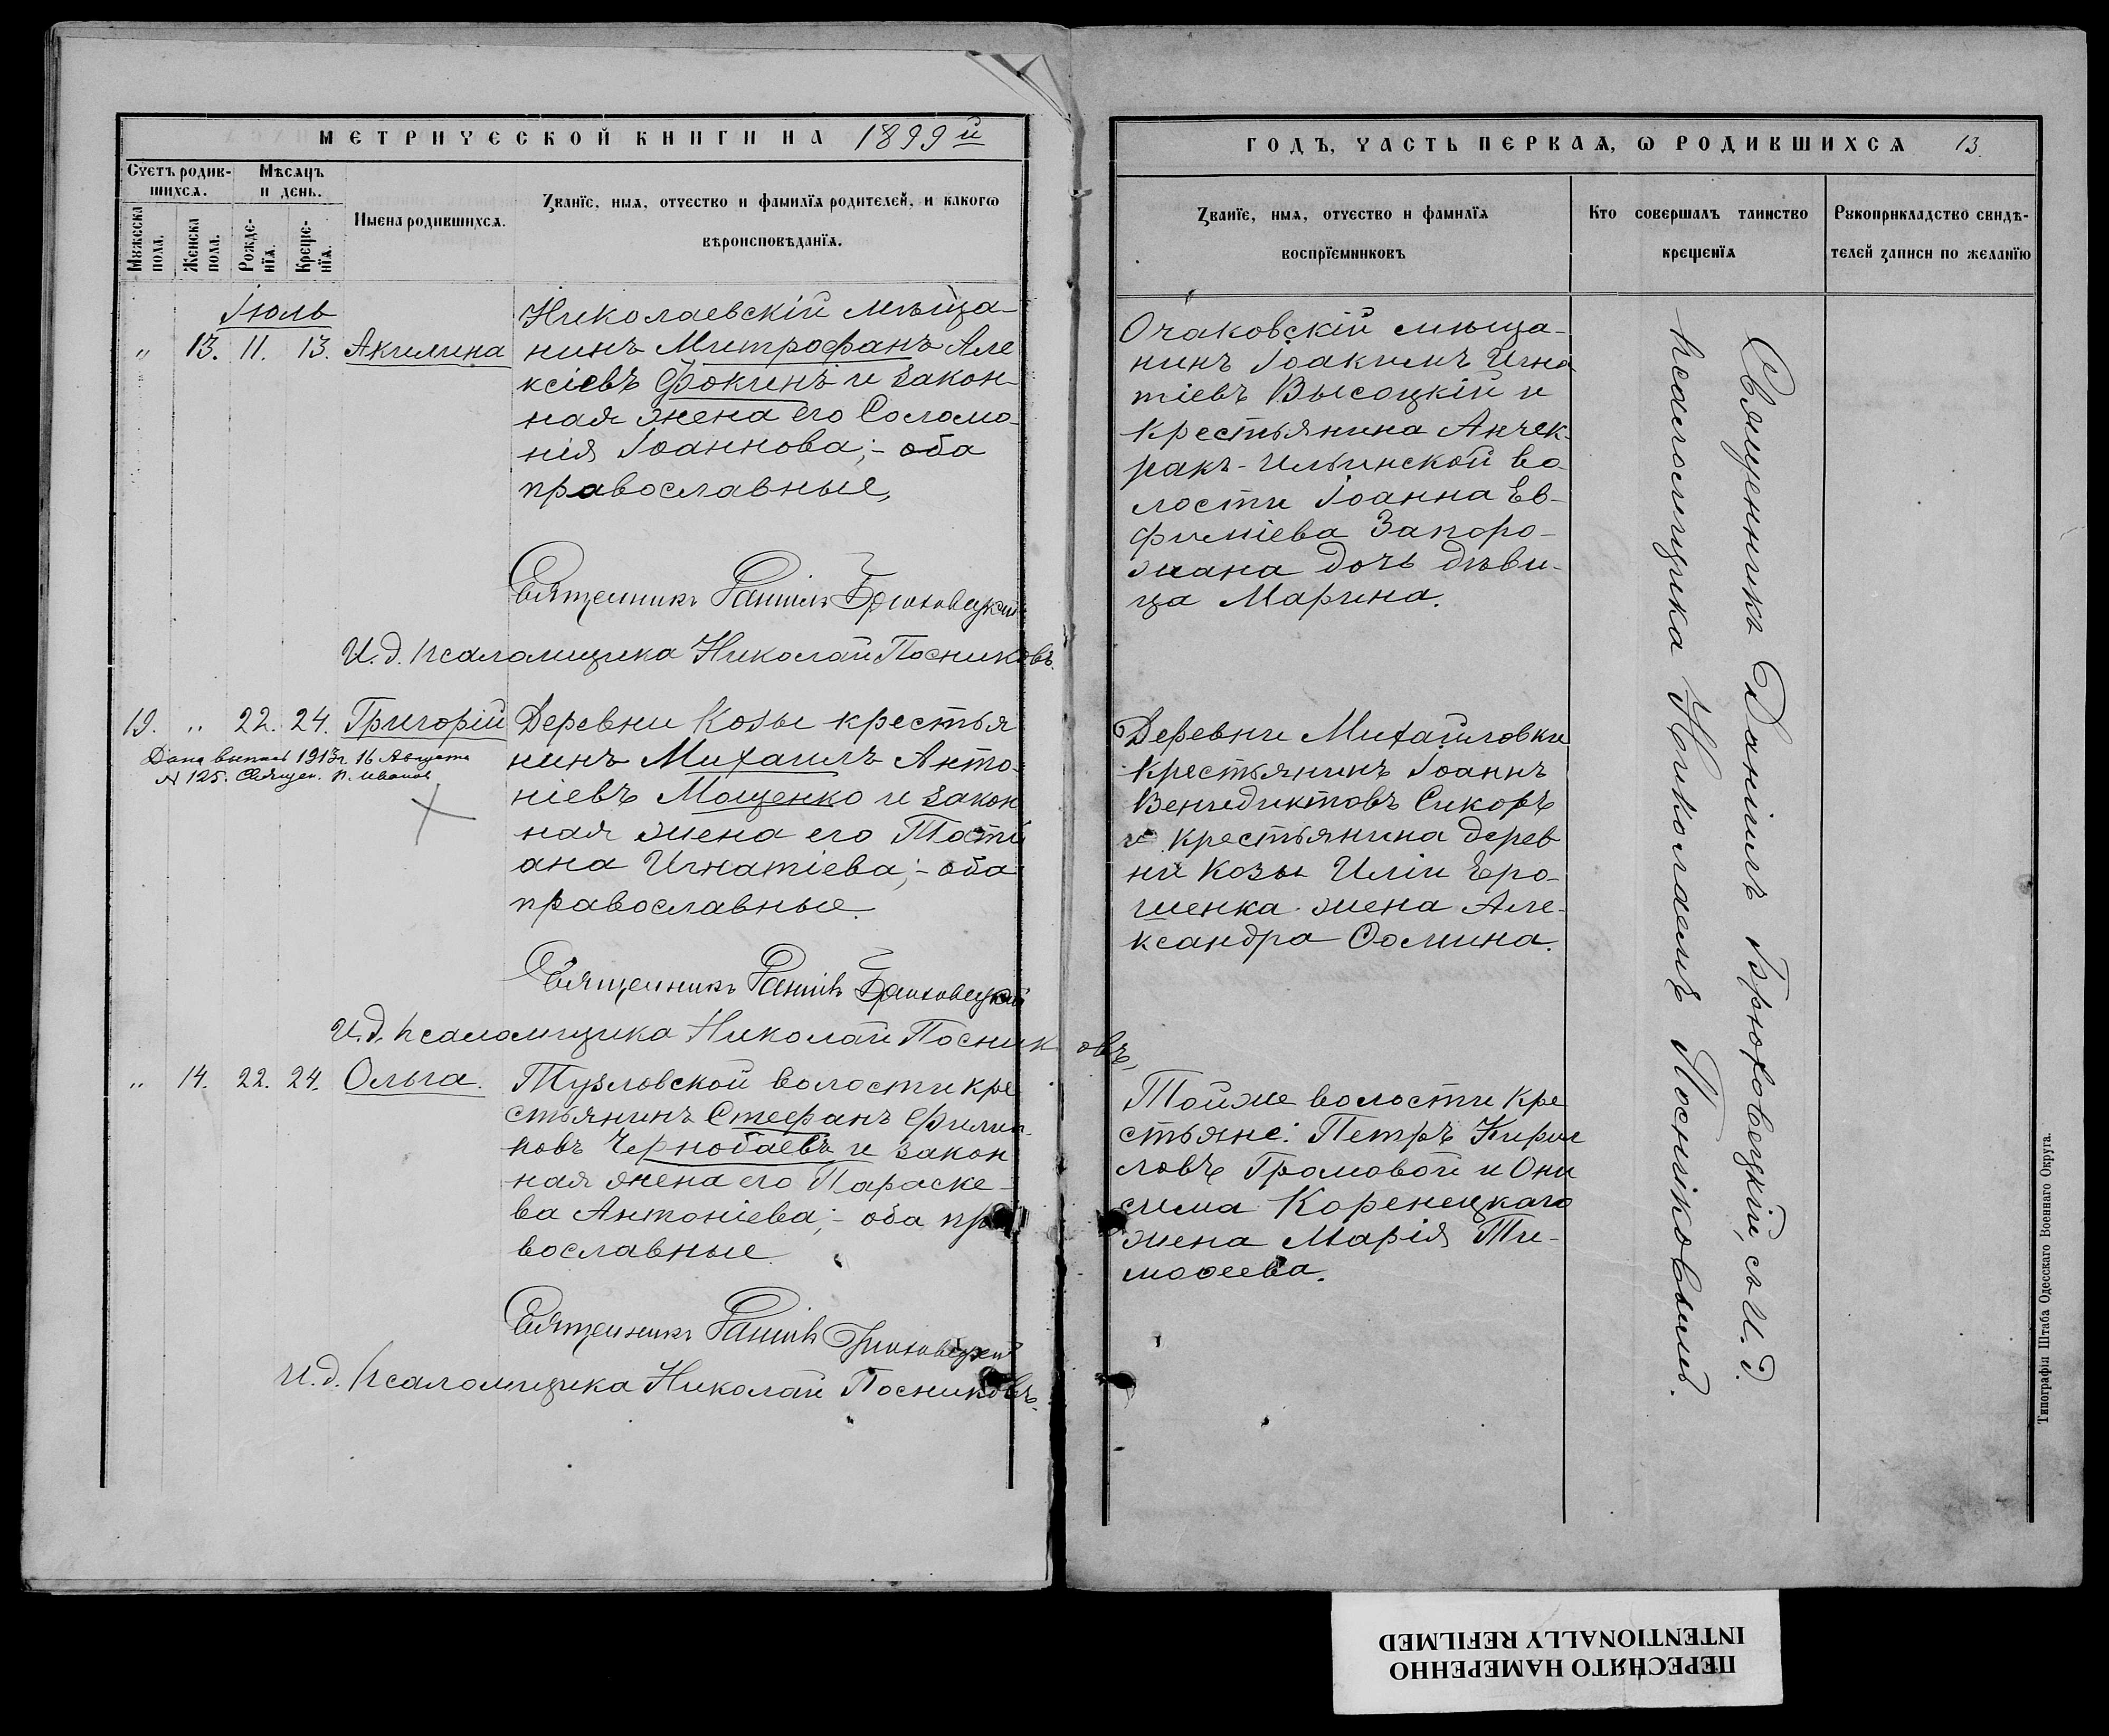 МЕТРИЧЕСКОЙ КНИГИ НА 1899й
Счетъ родив-
шихся.
Мѣсяцъ
и день.
Мужеска
пола.
Женска
пола.
Рожде-
нїя.
Креще-
нїя.
Имена родившихся.
Званїе, имя, отчество и фамилїя родителей, и какогѡ
вѣроисповѣданїя.
Іюль
„ 13. 11. 13. Акилина
Николаевскій мѣща-
нинъ Митрофанъ Але
ксіевъ Фокинъ и закон-
ная жена его Соломо-
нія Іоаннова; - оба
православные,
Священникъ Даніилъ Брюховецкій
И. д. псаломщика Николай Посниковъ.
19. „ 22. 24. Григорій
Дана выпись 1913г. 16 Августа
№ 125. Священ. П. Иванов
Деревни Козы крестья
нинъ Михаилъ Анто-
ніевъ Мощенко и закон
ная жена его Тати
ана Игнатіева; - оба
православные.
Священникъ Даніилъ Брюховецкій
И. д. псаломщика Николай Посниковъ,
„ 14. 22. 24. Ольга.
Тузловской волости кре
стьянинъ Стефанъ Филип-
повъ Чернобаевъ и закон
ная жена его Параске-
ва Антоніева; - оба пра
вославные.
Священникъ Даніилъ Брюховецкій
И. д. псаломщика Николай Посниковъ.
ГОДЪ, ЧАСТЬ ПЕРВАЯ, Ѡ РОДИВШИХСЯ 13.
Званїе, имя, отчество и фамилїя
воспрїемниковъ
Кто совершалъ таинство
крещенїя
Рукоприкладство свидѣ-
телей записи по желанїю
Очаковскій мѣща-
нинъ Іоакимъ Игна
тіевъ Высоцкій и
крестьянина Анчек-
ракъ-Ильинской во-
лости Іоанна Ев-
фиміева Запоро-
жана дочь дѣви-
ца Марина.
Деревни Михайловки
крестьянинъ Іоаннъ
Венидиктовъ Сикоръ
и крестьянина дерев
ни Козы Иліи Еро-
шенка жена Але-
ксандра Ѳомина.
Тойже волости кре
стьяне: Петръ Кирил
ловъ Громовой и Они
сима Коренецкаго
жена Марія Ти-
моѳеева.
Священникъ Даніилъ Брюховецкій, съ И. д.
псаломщика Николаемъ Посниковымъ.
Типографія Штаба Одесскаго Военнаго Округа.
ПЕРЕСНЯТО НАМЕРЕННО
INTENTIONALLY REFILMED